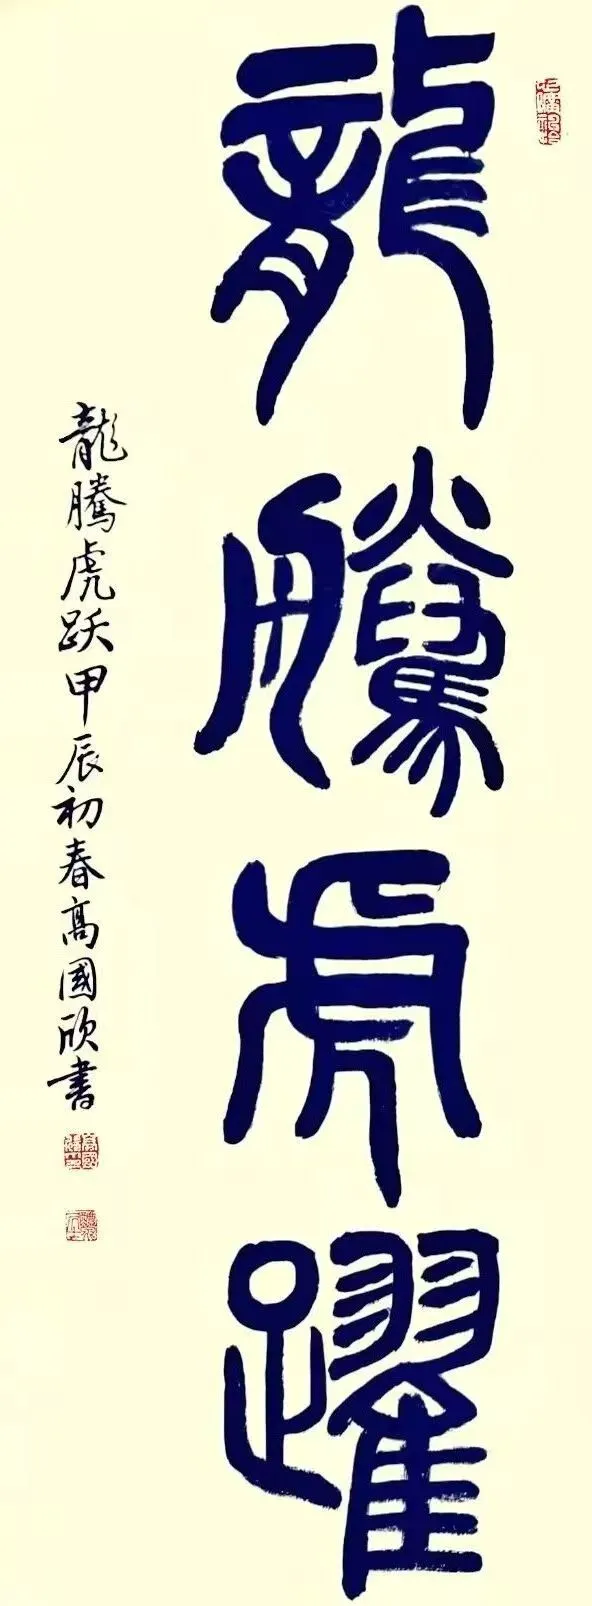 龍騰虎躍
龍騰虎跃甲辰初春高國欣書